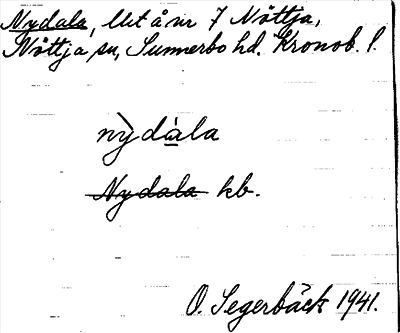 Nydala, lht å nr 7 Nöttja,
Nöttja sn, Sunnerbo hd. Kronob. l.
ny̆dàla
Nydala kb.
O. Segerbäck 1941.